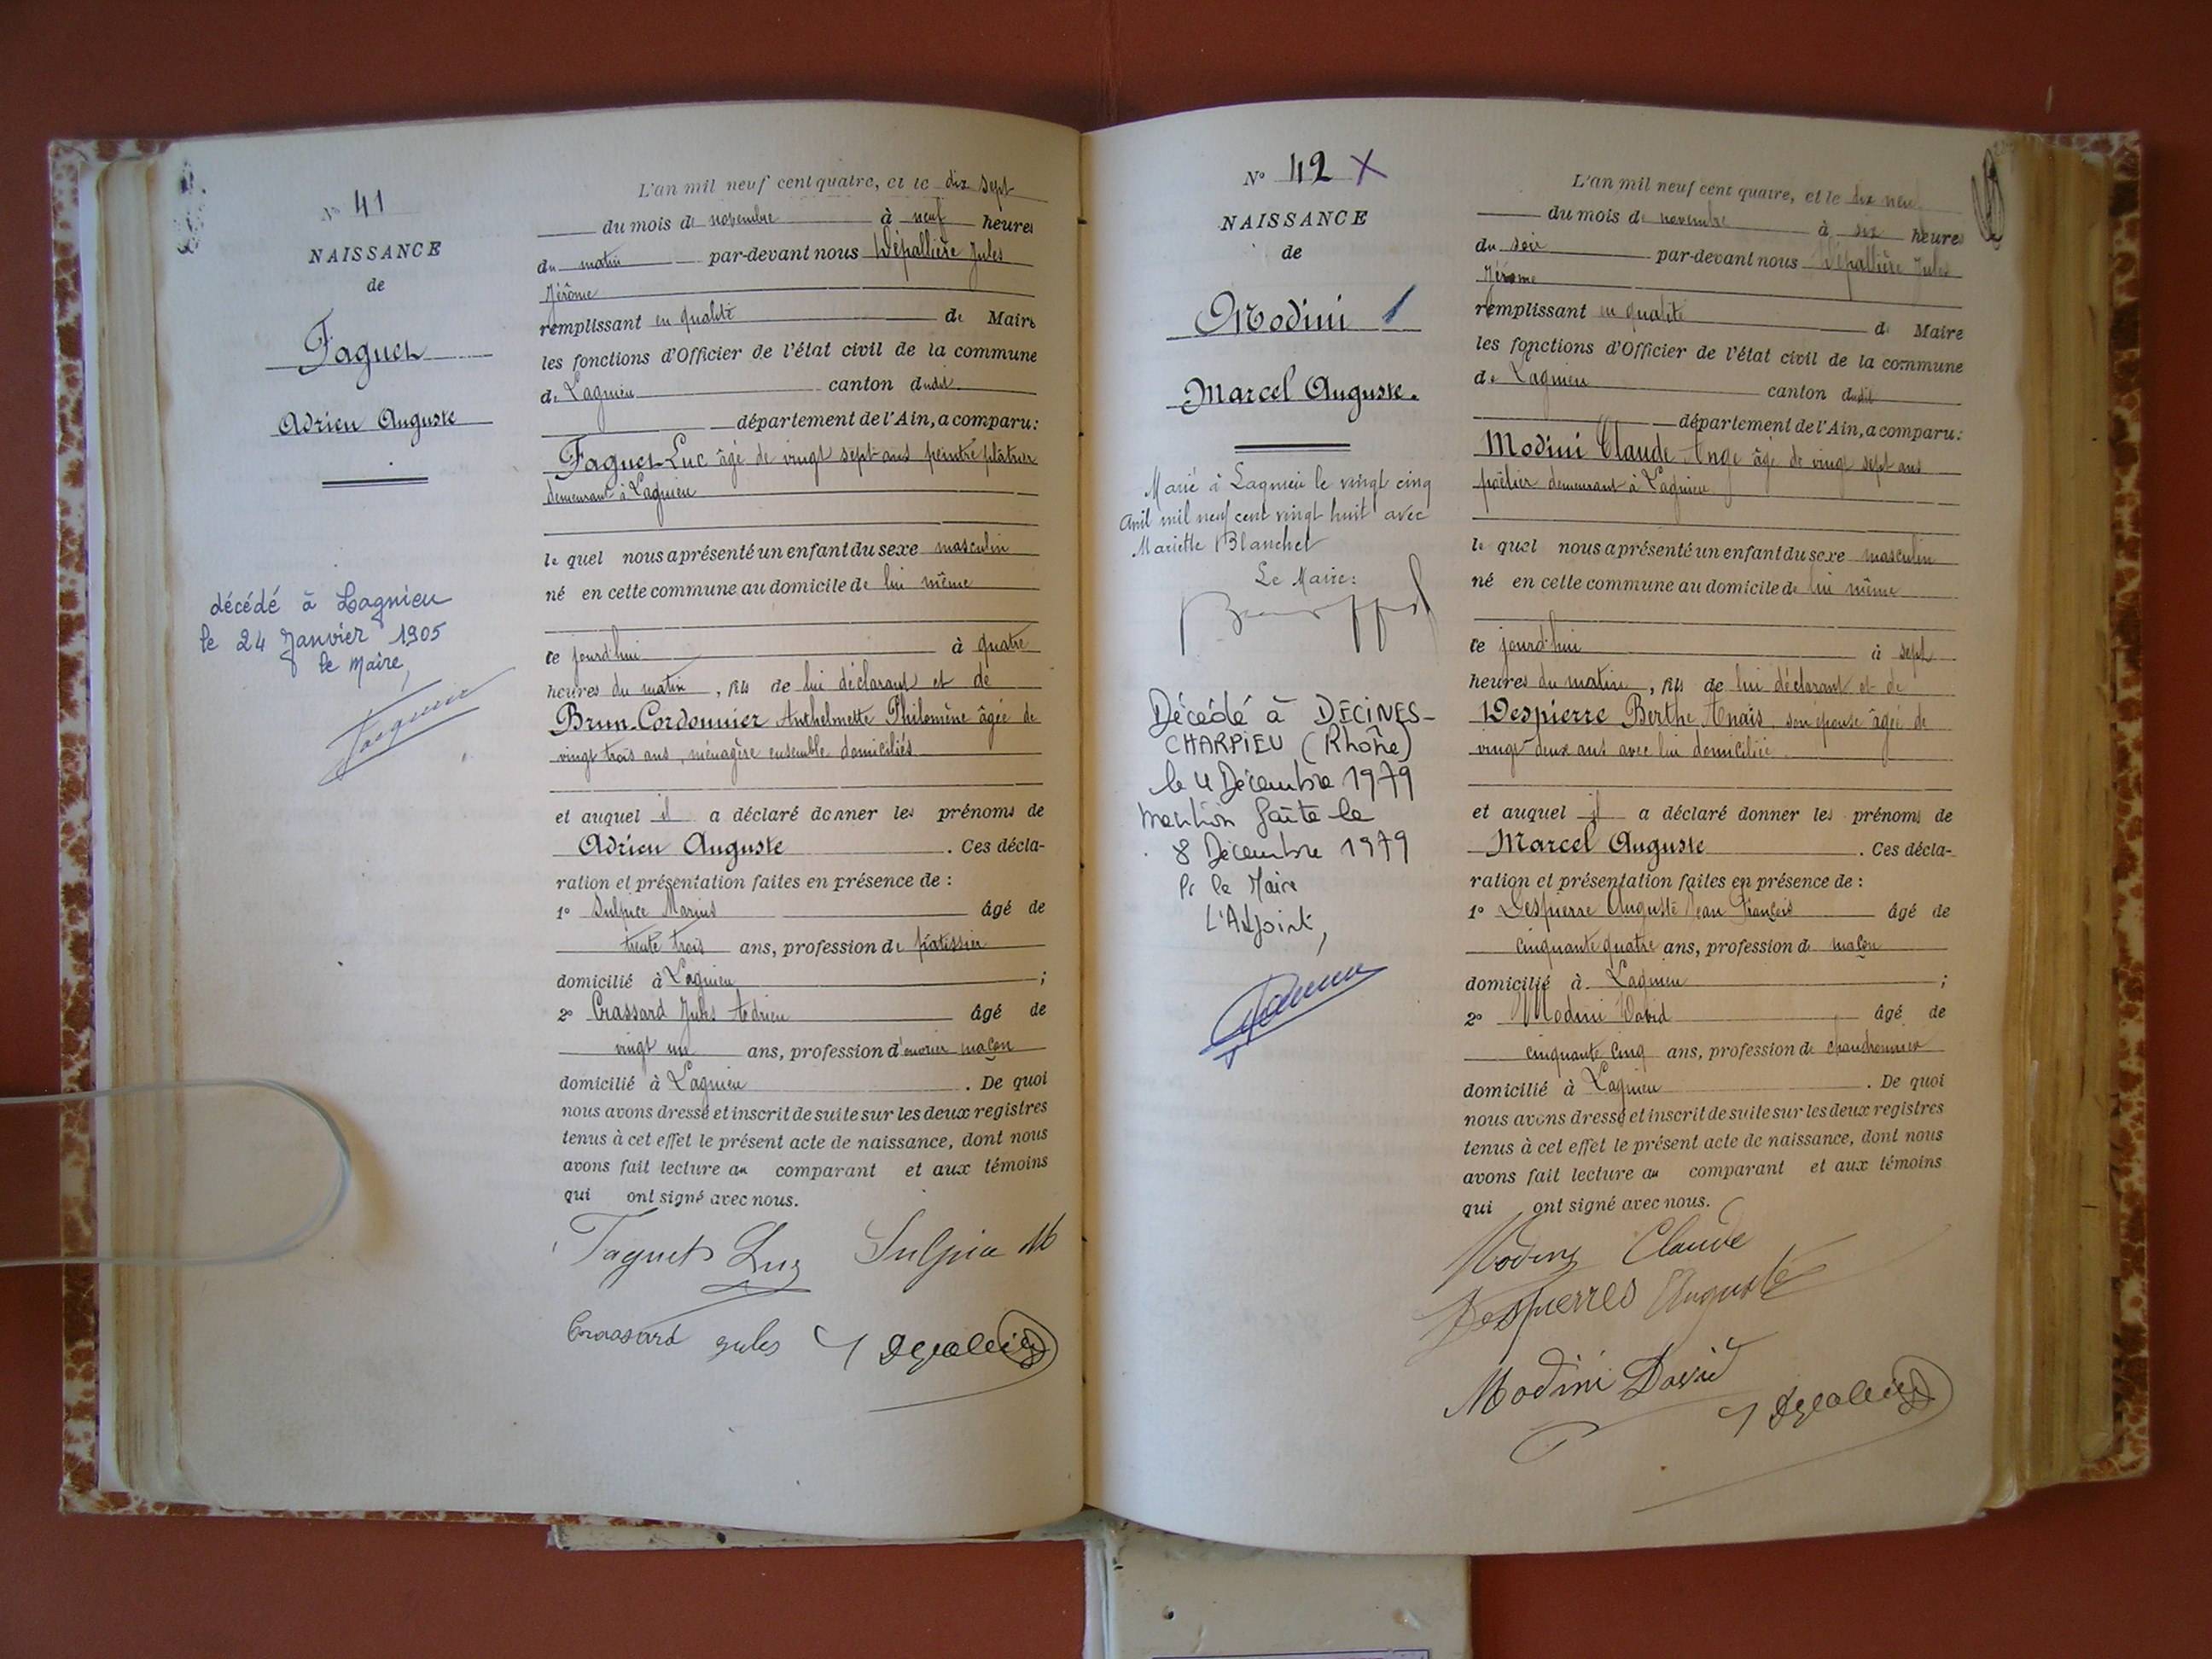 N° 41
NAISSANCE
de
Faguet
Adrien Auguste
décédé à Lagnieu
le 24 Janvier 1905
le Maire,
L'an mil neuf cent quatre, et le dix sept
du mois de novembre à neuf heures
du matin par-devant nous Dépallière Jules
Jérôme
remplissant en qualité de Maire
les fonctions d'Officier de l'état civil de la commune
de Lagnieu canton dudit
département de l'Ain, a comparu:
Faguet Luc âgé de vingt sept ans peintre plâtrier
demeurant à Lagnieu
le quel nous a présenté un enfant du sexe masculin
né en cette commune au domicile de lui même
ce jourd'hui à quatre
heures du matin, fils de lui déclarant et de
Brun-Cordonnier Anthelmette Philomène âgée de
vingt trois ans, ménagère ensemble domiciliés
et auquel il a déclaré donner les prénoms de
Adrien Auguste. Ces décla-
ration et présentation faites en présence de :
1° Sulpice Marius âgé de
trente trois ans, profession de patissier
domicilié à Lagnieu ;
2° Crassard Jules Adrien âgé de
vingt un ans, profession d'ouvrier maçon
domicilié à Lagnieu. De quoi
nous avons dressé et inscrit de suite sur les deux registres
tenus à cet effet le présent acte de naissance, dont nous
avons fait lecture au comparant et aux témoins
qui ont signé avec nous.
Faguet Luc Sulpice M
Crassard Jules
N° 42 X
NAISSANCE
de
Modini
Marcel Auguste.
Marié à Lagnieu le vingt cinq
avril mil neuf cent vingt huit avec
Mariette Blanchet
Le Maire:
Décédé à DECINES-
CHARPIEU (Rhône)
le 4 Décembre 1979
mention faite le
8 Décembre 1979
Pr le Maire
L'Adjoint,
L'an mil neuf cent quatre, et le dix neuf
du mois de novembre à six heures
du soir par-devant nous Dépallière Jules
Jérôme
remplissant en qualité de Maire
les fonctions d'Officier de l'état civil de la commune
de Lagnieu canton dudit
département de l'Ain, a comparu:
Modini Claude Ange âgé de vingt sept ans
poëlier demeurant à Lagnieu
le quel nous a présenté un enfant du sexe masculin
né en cette commune au domicile de lui même
ce jourd'hui à sept
heures du matin, fils de lui déclarant et de
Despierre Berthe Anaïs, son épouse âgée de
vingt deux ans avec lui domiciliée
et auquel il a déclaré donner les prénoms de
Marcel Auguste. Ces décla-
ration et présentation faites en présence de :
1° Despierre Auguste Jean François âgé de
cinquante quatre ans, profession de maçon
domicilié à Lagnieu ;
2° Modini David âgé de
cinquante cinq ans, profession de chaudronnier
domicilié à Lagnieu. De quoi
nous avons dressé et inscrit de suite sur les deux registres
tenus à cet effet le présent acte de naissance, dont nous
avons fait lecture au comparant et aux témoins
qui ont signé avec nous.
Modini Claude
Despierres Auguste
Modini David